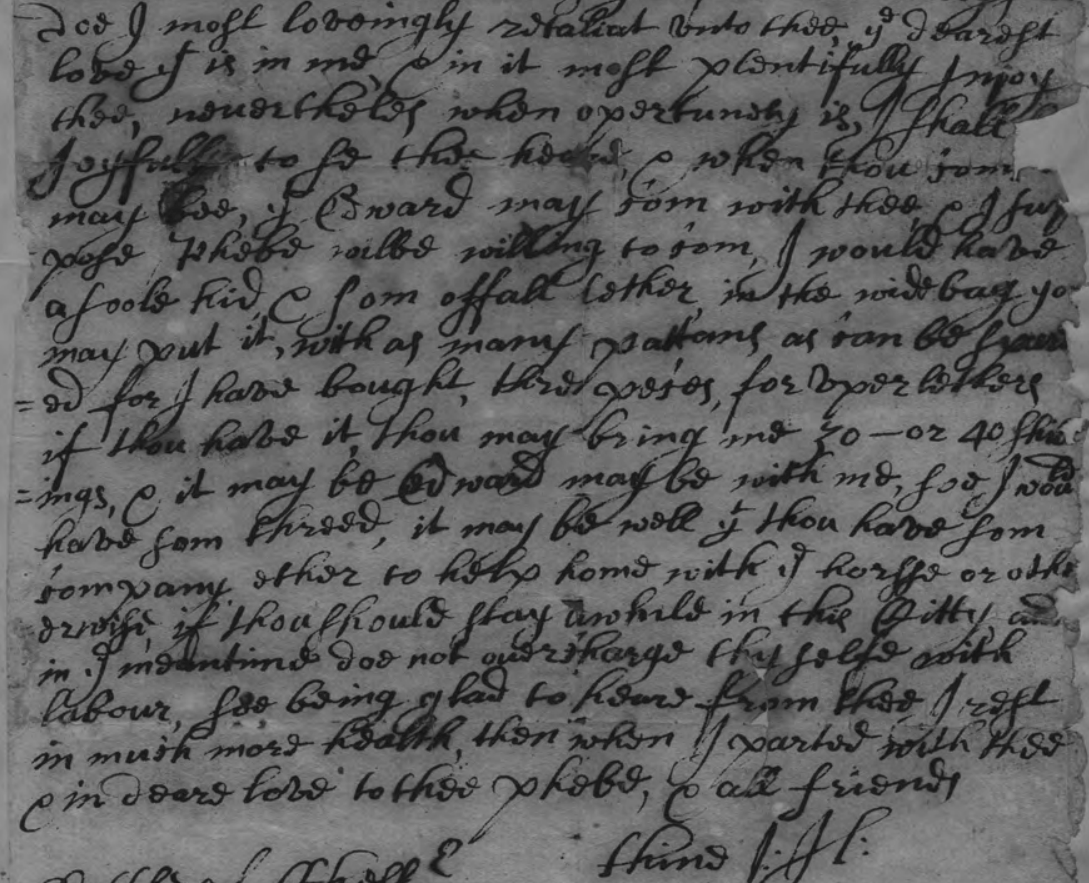 doe I most loveingly retaliat unto thee, yᵉ dearest
love yᵗ is in me, & in it most plentifully Injoy
thee, nevertheles when opertunety is, I shall
Joyfull to se thee heare, & when thou com
may bee, yᵗ Edward may com with thee, & I sup
pose Phebe wilbe willing to com, I would have
a soole hid, & som offall lether in the wide bag yo
may put it, with as many pattans as can be
=ed for I have bought, thre peces, for uper lethers
if thou have it, thou may bring me 30 - or 40 shil
=ings, & it may be Edward may be with me, soe I would
have som threed, it may be well yᵗ thou have som
company ether to help home with yᵉ horsse or othe
erwise, if thou should stay awhile in this Citty and
in yᵉ meantime doe not overcharge thy selfe with
labour, soe being glad to heare from thee, I rest
in much more health, then when I parted with thee
& in deare love to thee phebe, & all friends
thine J: H: